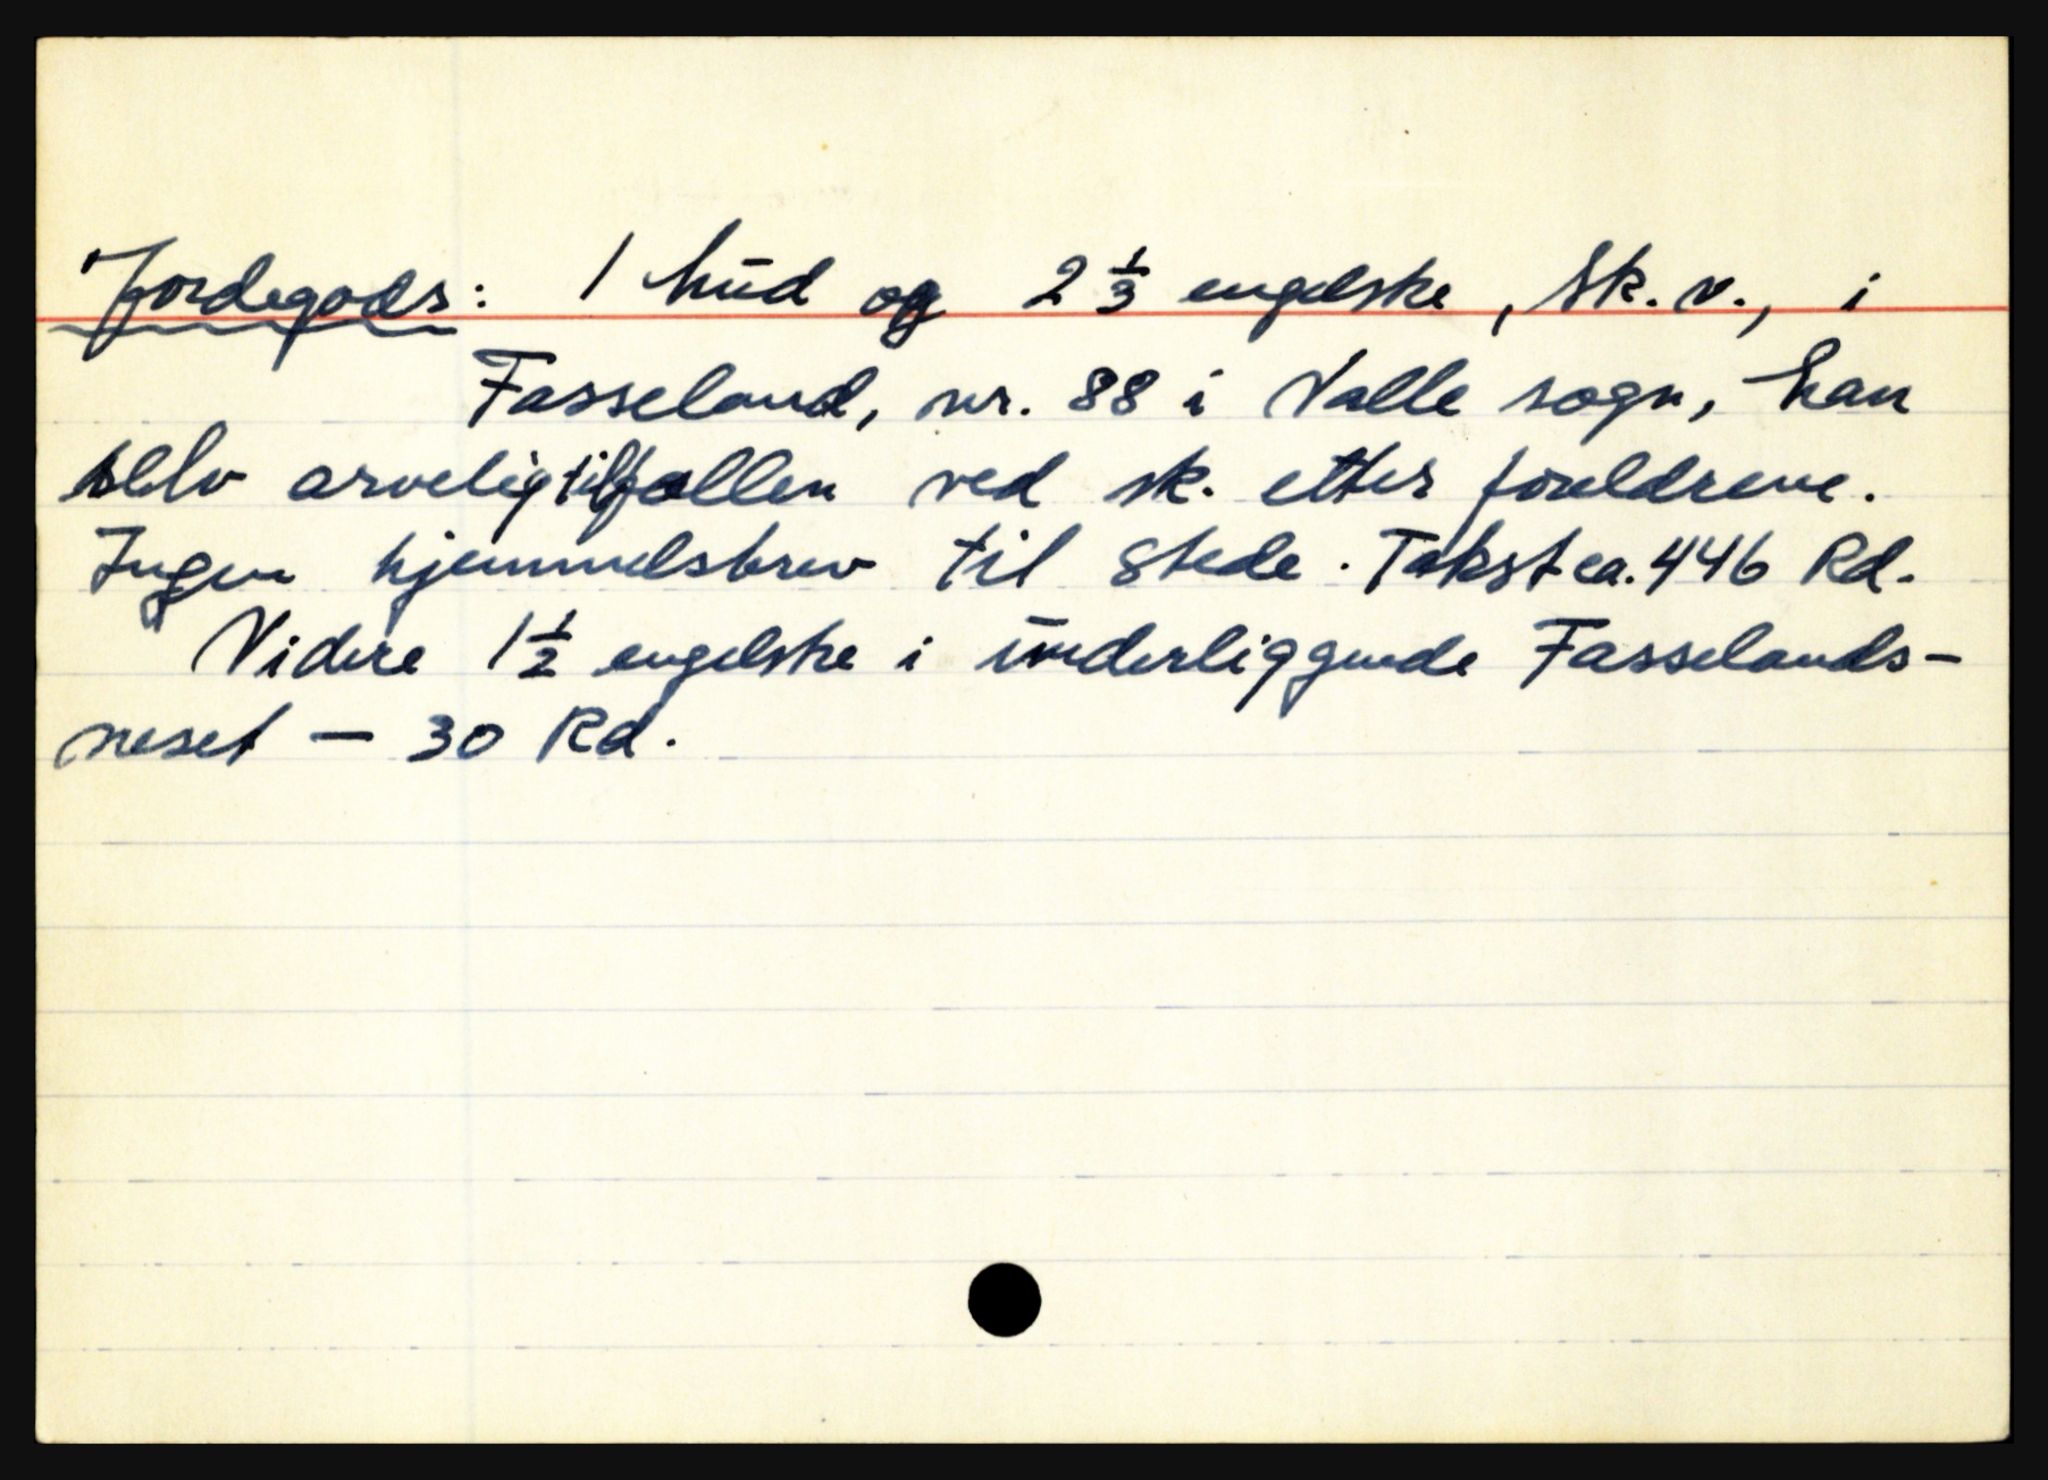 Jordegods: 1 hud og 2 1/3 engelske, sk. v., i
Fasseland, nr. 88 i Valle sogn, han
selv arvelig tilfallen ved sk. etter foreldrene.
Ingen hjemmelsbrev til stede. Takst ca. 446 Rd.
Videre 1 1/2 engelske i underliggende Fasselands-
neset — 30 Rd.